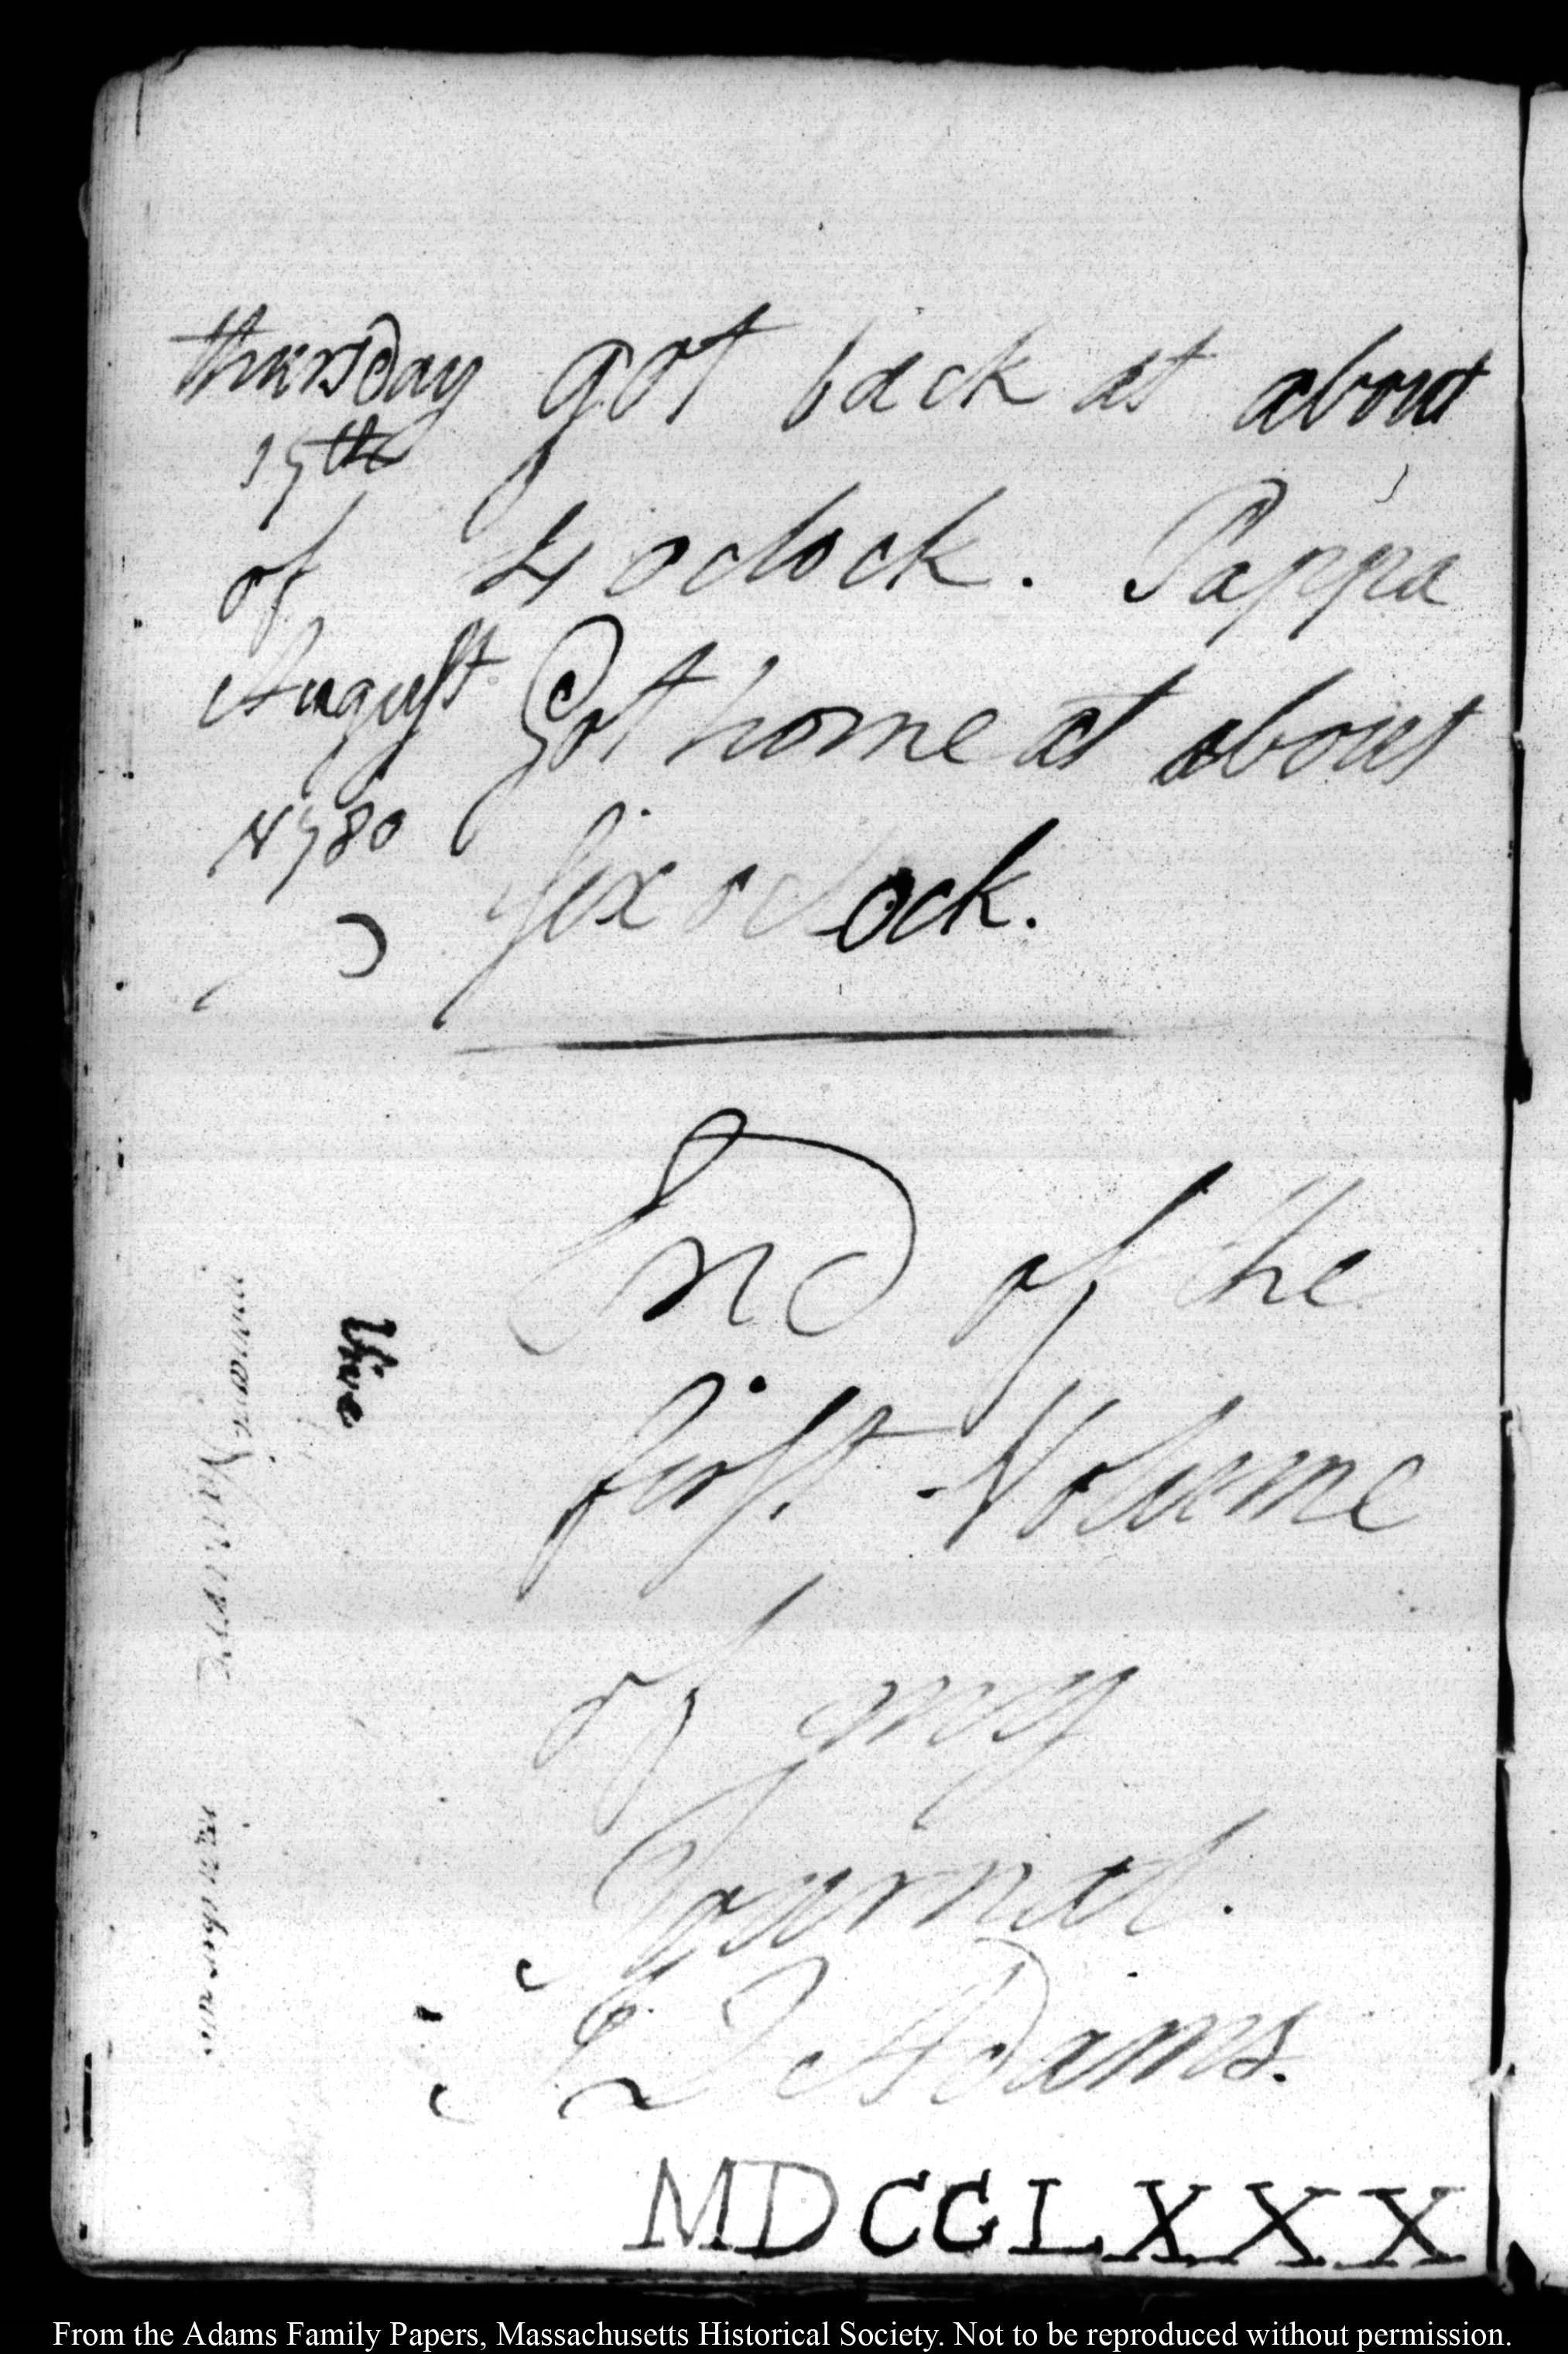 thursday got back at about
17th
of 4 oclock. Pappa
August Got home at about
1780 six oclock.
End of the
first Volume
of my
Journal.
J Q Adams.
MDCCLXXX
Vive
From the Adams Family Papers, Massachusetts Historical Society. Not to be reproduced without permission.